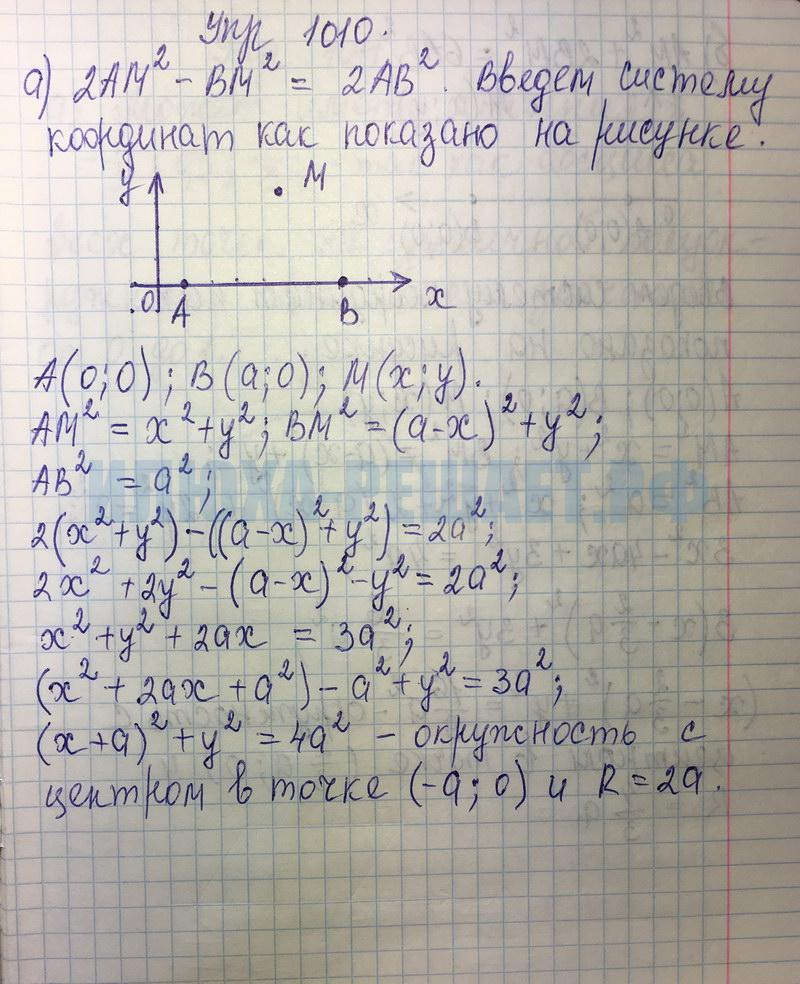 Упр 1010.
а) 2AM² - BM² = 2AB². Введем систему
координат как показано на рисунке.
y M
0 A B x
A(0;0); B(a;0); M(x;y).
AM² = x²+y²; BM² = (a-x)²+y²;
AB² = a²;
ИЛЮХА-РЕШАЕТ.РФ
2(x²+y²)-((a-x)²+y²)=2a²;
2x²+2y²-(a-x)²-y²=2a²;
x²+y²+2ax = 3a²;
(x²+2ax+a²)-a²+y²=3a²;
(x+a)²+y²=4a² - окружность с
центром в точке (-a;0) и R=2a.